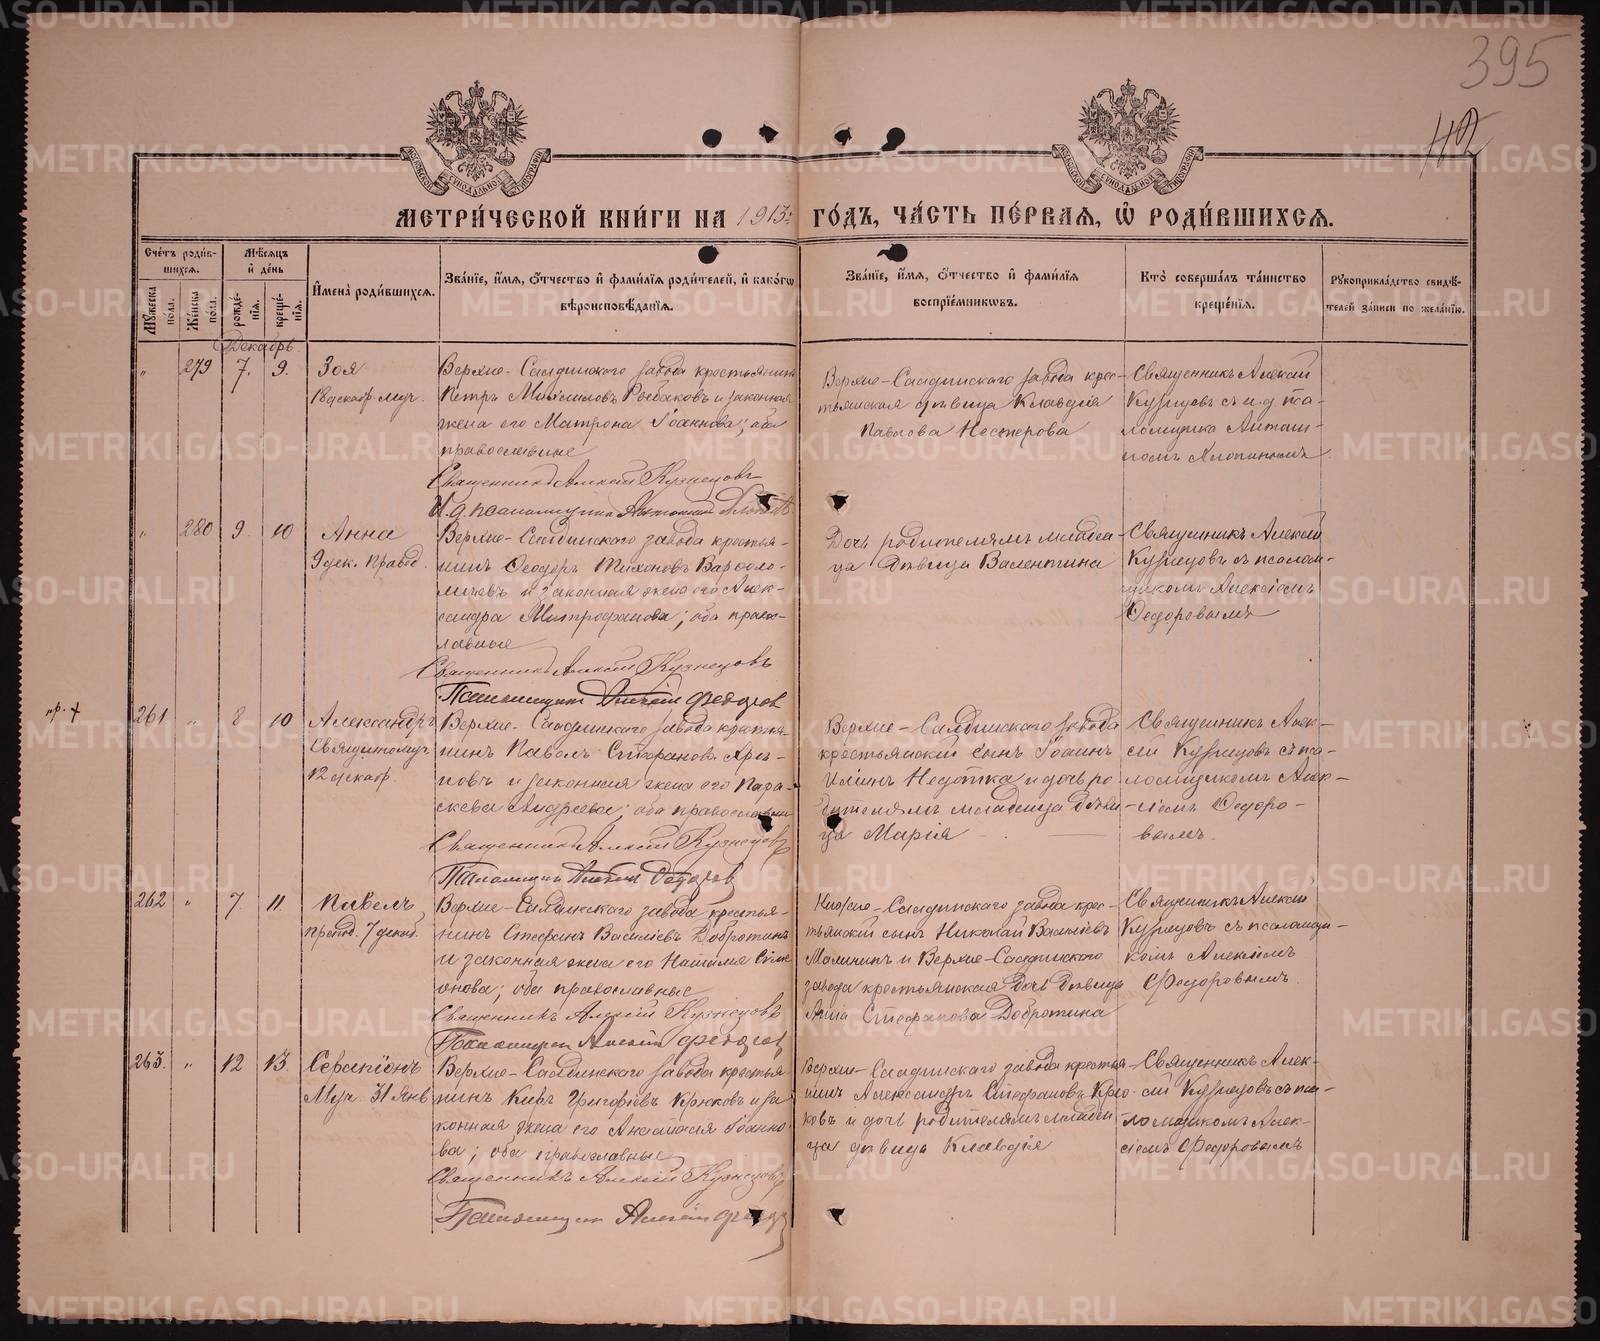 395
112
МОСКОВСКОЙ СѴНОДАЛЬНОЙ ТИПОГРАФІИ
МОСКОВСКОЙ СѴНОДАЛЬНОЙ ТИПОГРАФІИ
МЕТРИ́ЧЕСКОЙ КНИ́ГИ НА 1913: ГО́ДЪ, ЧА́СТЬ ПЕ́РВАЯ, Ѡ҆ РОДИ́ВШИХСЯ.
Счетъ роди́вшихся.
Мꙋжеска по́ла.
Же́нска по́ла.
Мѣ́сяцъ и҆ де́нь
рожде́нїя.
креще́нїя.
И҆мена̀ роди́вшихся.
Зва́нїе, и҆́мя, ѻ҆́тчество и҆ фами́лїя роди́телей, и҆ како́гѡ вѣроисповѣ́данїя.
Зва́нїе, и҆́мя, ѻ҆́тчество и҆ фами́лїя воспрїе́мникѡвъ.
Кто̀ соверша́лъ та́инство креще́нїя.
Рꙋкоприкла́дство свидѣ́телей за́писи по жела́нїю.
Декабрь
" 279 7. 9. Зоя
18 декабр. муч.
Верхне-Салдинскаго завода крестьянинъ
Петръ Михаиловъ Рыбаковъ и законная
жена его Матрона Іоаннова; оба
православные
Священникъ Алексій Кузнецовъ
И.д. псаломщика Антонинъ Хлопинъ
Верхне-Салдинскаго завода крес-
тьянская дѣвица Клавдія
Павлова Нестерова
Священникъ Алексій
Кузнецовъ съ и.д. пса-
ломщика Антони-
номъ Хлопинымъ
" 280 9. 10 Анна
9 дек. Правед.
Верхне-Салдинскаго завода крестья-
нинъ Ѳеодоръ Тихоновъ Варѳоло-
мѣевъ и законная жена его Алек-
сандра Митрофанова; оба право-
славные
Священникъ Алексій Кузнецовъ
Псаломщикъ Алексій Федоровъ
Дочь родителямъ младен-
ца дѣвица Валентина
Священникъ Алексій
Кузнецовъ съ псалом-
щикомъ Алексіемъ
Ѳедоровымъ
пр. +
261 " 8 10 Александръ
Священномуч.
12 декабр.
Верхне-Салдинскаго завода крестья-
нинъ Павелъ Стефановъ
и законная жена его Пара-
скева Андреева; оба православные
Священникъ Алексій Кузнецовъ
Псаломщикъ Алексій Федоровъ
Верхне-Салдинскаго завода
крестьянскій сынъ Іоаннъ
и дочь ро-
дителямъ младенца дѣви-
ца Марія
Священникъ Алек-
сій Кузнецовъ съ пса-
ломщикомъ Алек-
сіемъ Ѳедоро-
вымъ.
262 " 7 11 Павелъ,
препод. 7 декаб.
Верхне-Салдинскаго завода крестья-
нинъ Стефанъ Василіевъ Добротинъ
и законная жена его Наталия Симе-
онова; оба православные
Священникъ Алексій Кузнецовъ
Псаломщикъ Алексій Федоровъ
Нижне-Салдинскаго завода крес-
тьянскій сынъ Николай Василіевъ
Малининъ и Верхне-Салдинского
завода крестьянская дочь дѣвица
Анна Стефанова Добротина
Священникъ Алексій
Кузнецовъ съ псаломщи-
комъ Алексіемъ
Ѳедоровымъ
263. " 12 13. Серапіонъ
Муч. 31 Янв
Верхне-Салдинскаго завода крестья-
нинъ Киръ Григоріевъ Крюковъ и за-
конная жена его Анастасія Іоанно-
ва; оба православные
Священникъ Алексій Кузнецовъ
Псаломщикъ Алексій
Верхне-Салдинскаго завода крестья-
нинъ Александръ Стефановъ Крю-
ковъ и дочь родителямъ младен-
ца дѣвица Клавдія
Священникъ Алек-
сій Кузнецовъ съ пса-
ломщикомъ Алек-
сіемъ Ѳедоровымъ
METRIKI.GASO-URAL.RU